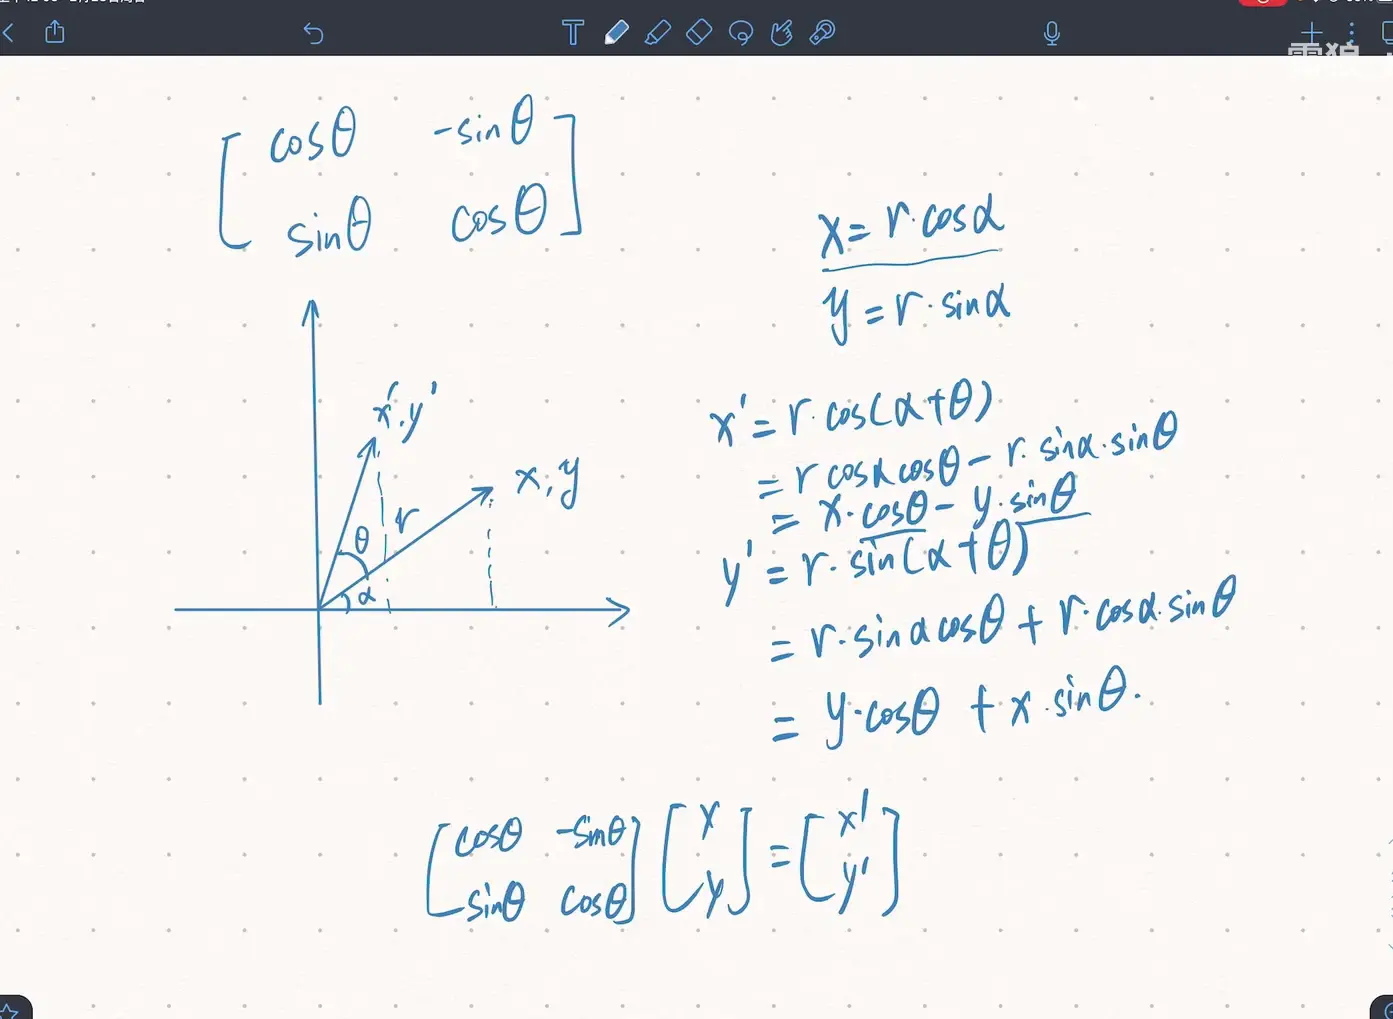 雪狼
[cosθ -sinθ
sinθ cosθ]
x = r·cosα
y = r·sinα
x', y'
x, y
r
θ
α
x' = r·cos(α+θ)
= r cosα cosθ - r·sinα·sinθ
= x·cosθ - y·sinθ
y' = r·sin(α+θ)
= r·sinα cosθ + r·cosα·sinθ
= y·cosθ + x·sinθ.
[cosθ -sinθ] [x] = [x']
[sinθ cosθ] [y] [y']